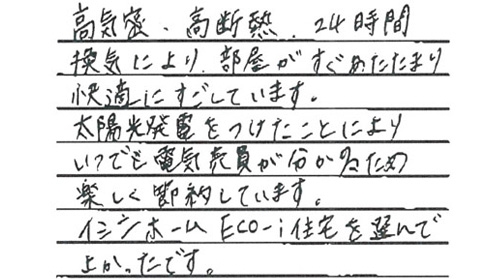 高気密、高断熱、24時間
換気により、部屋がすぐあたたまり
快適にすごしています。
太陽光発電をつけたことにより
いつでも電気売買が分かるため
楽しく節約しています。
イシンホームECO-i住宅を選んで
よかったです。